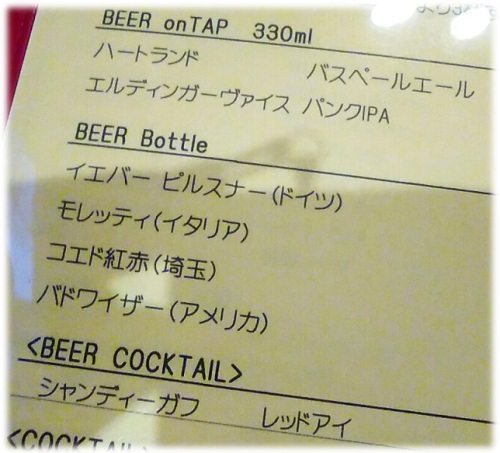 BEER onTAP 330ml
ハートランド バスペールエール
エルディンガーヴァイス パンクIPA
BEER Bottle
イエバー ピルスナー(ドイツ)
モレッティ(イタリア)
コエド紅赤(埼玉)
バドワイザー(アメリカ)
<BEER COCKTAIL>
シャンディーガフ レッドアイ
<COCKTAIL>